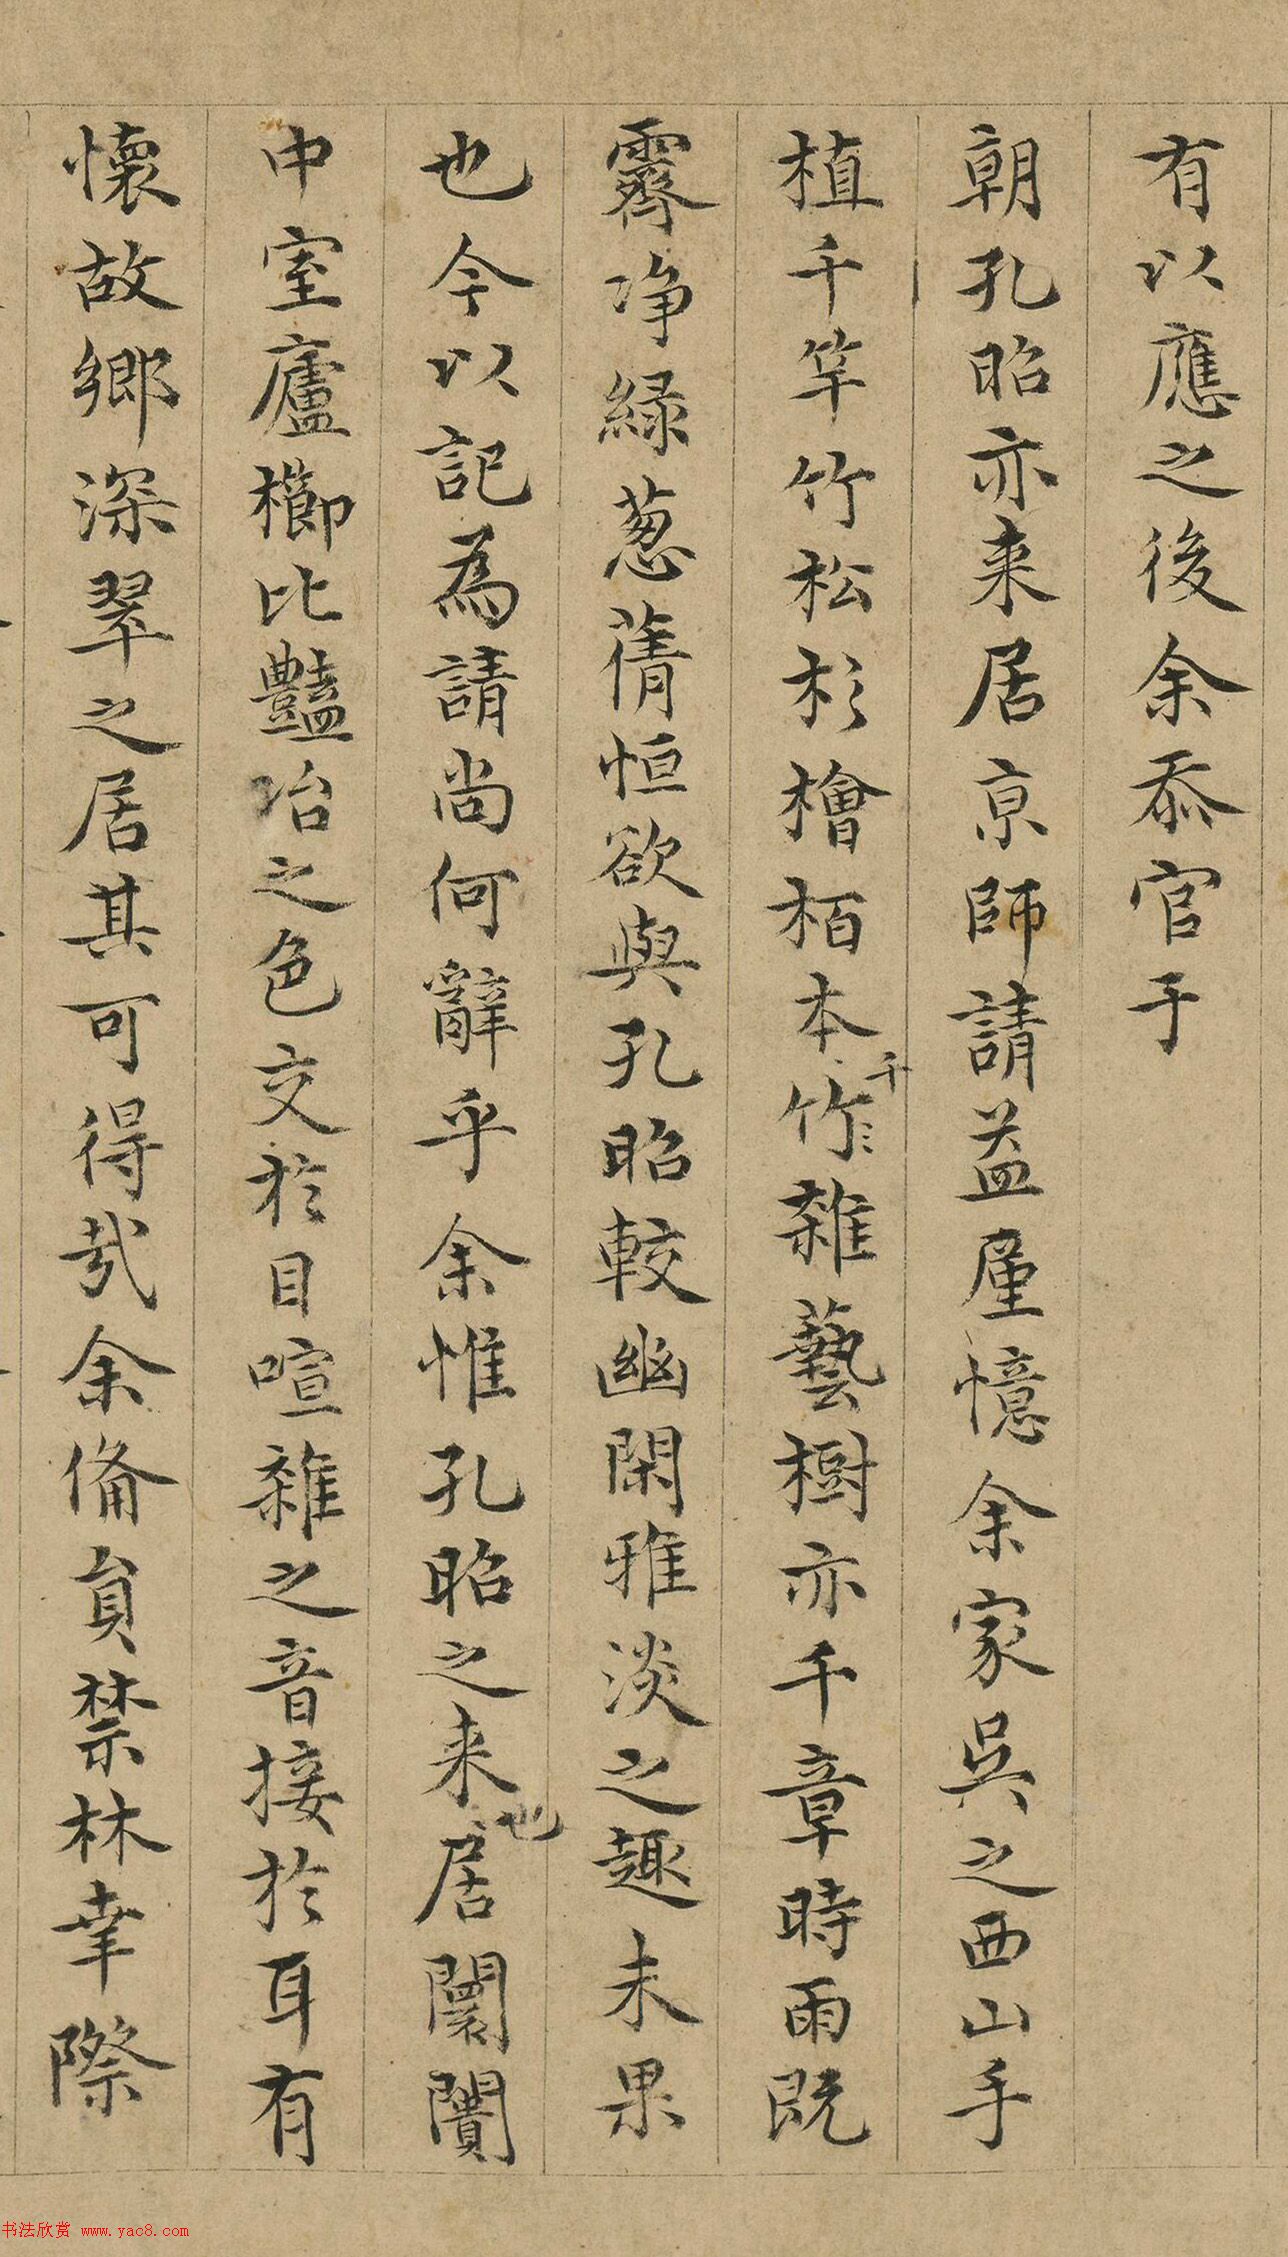 有以應之後余忝官于
朝孔昭亦来居京師請益屢憶余家吳之西山手
植千竿竹松杉檜栢本竹千雜藝樹亦千章時雨既
霽净綠葱蒨恒欲與孔昭較幽閑雅淡之趣未果
也今以記為請尚何辭乎余惟孔昭之来也居闤闠
中室廬櫛比豔冶之色交於目喧雜之音接於耳有
懷故鄉深翠之居其可得哉余俻員禁林幸際
书法欣赏 www.yac8.com